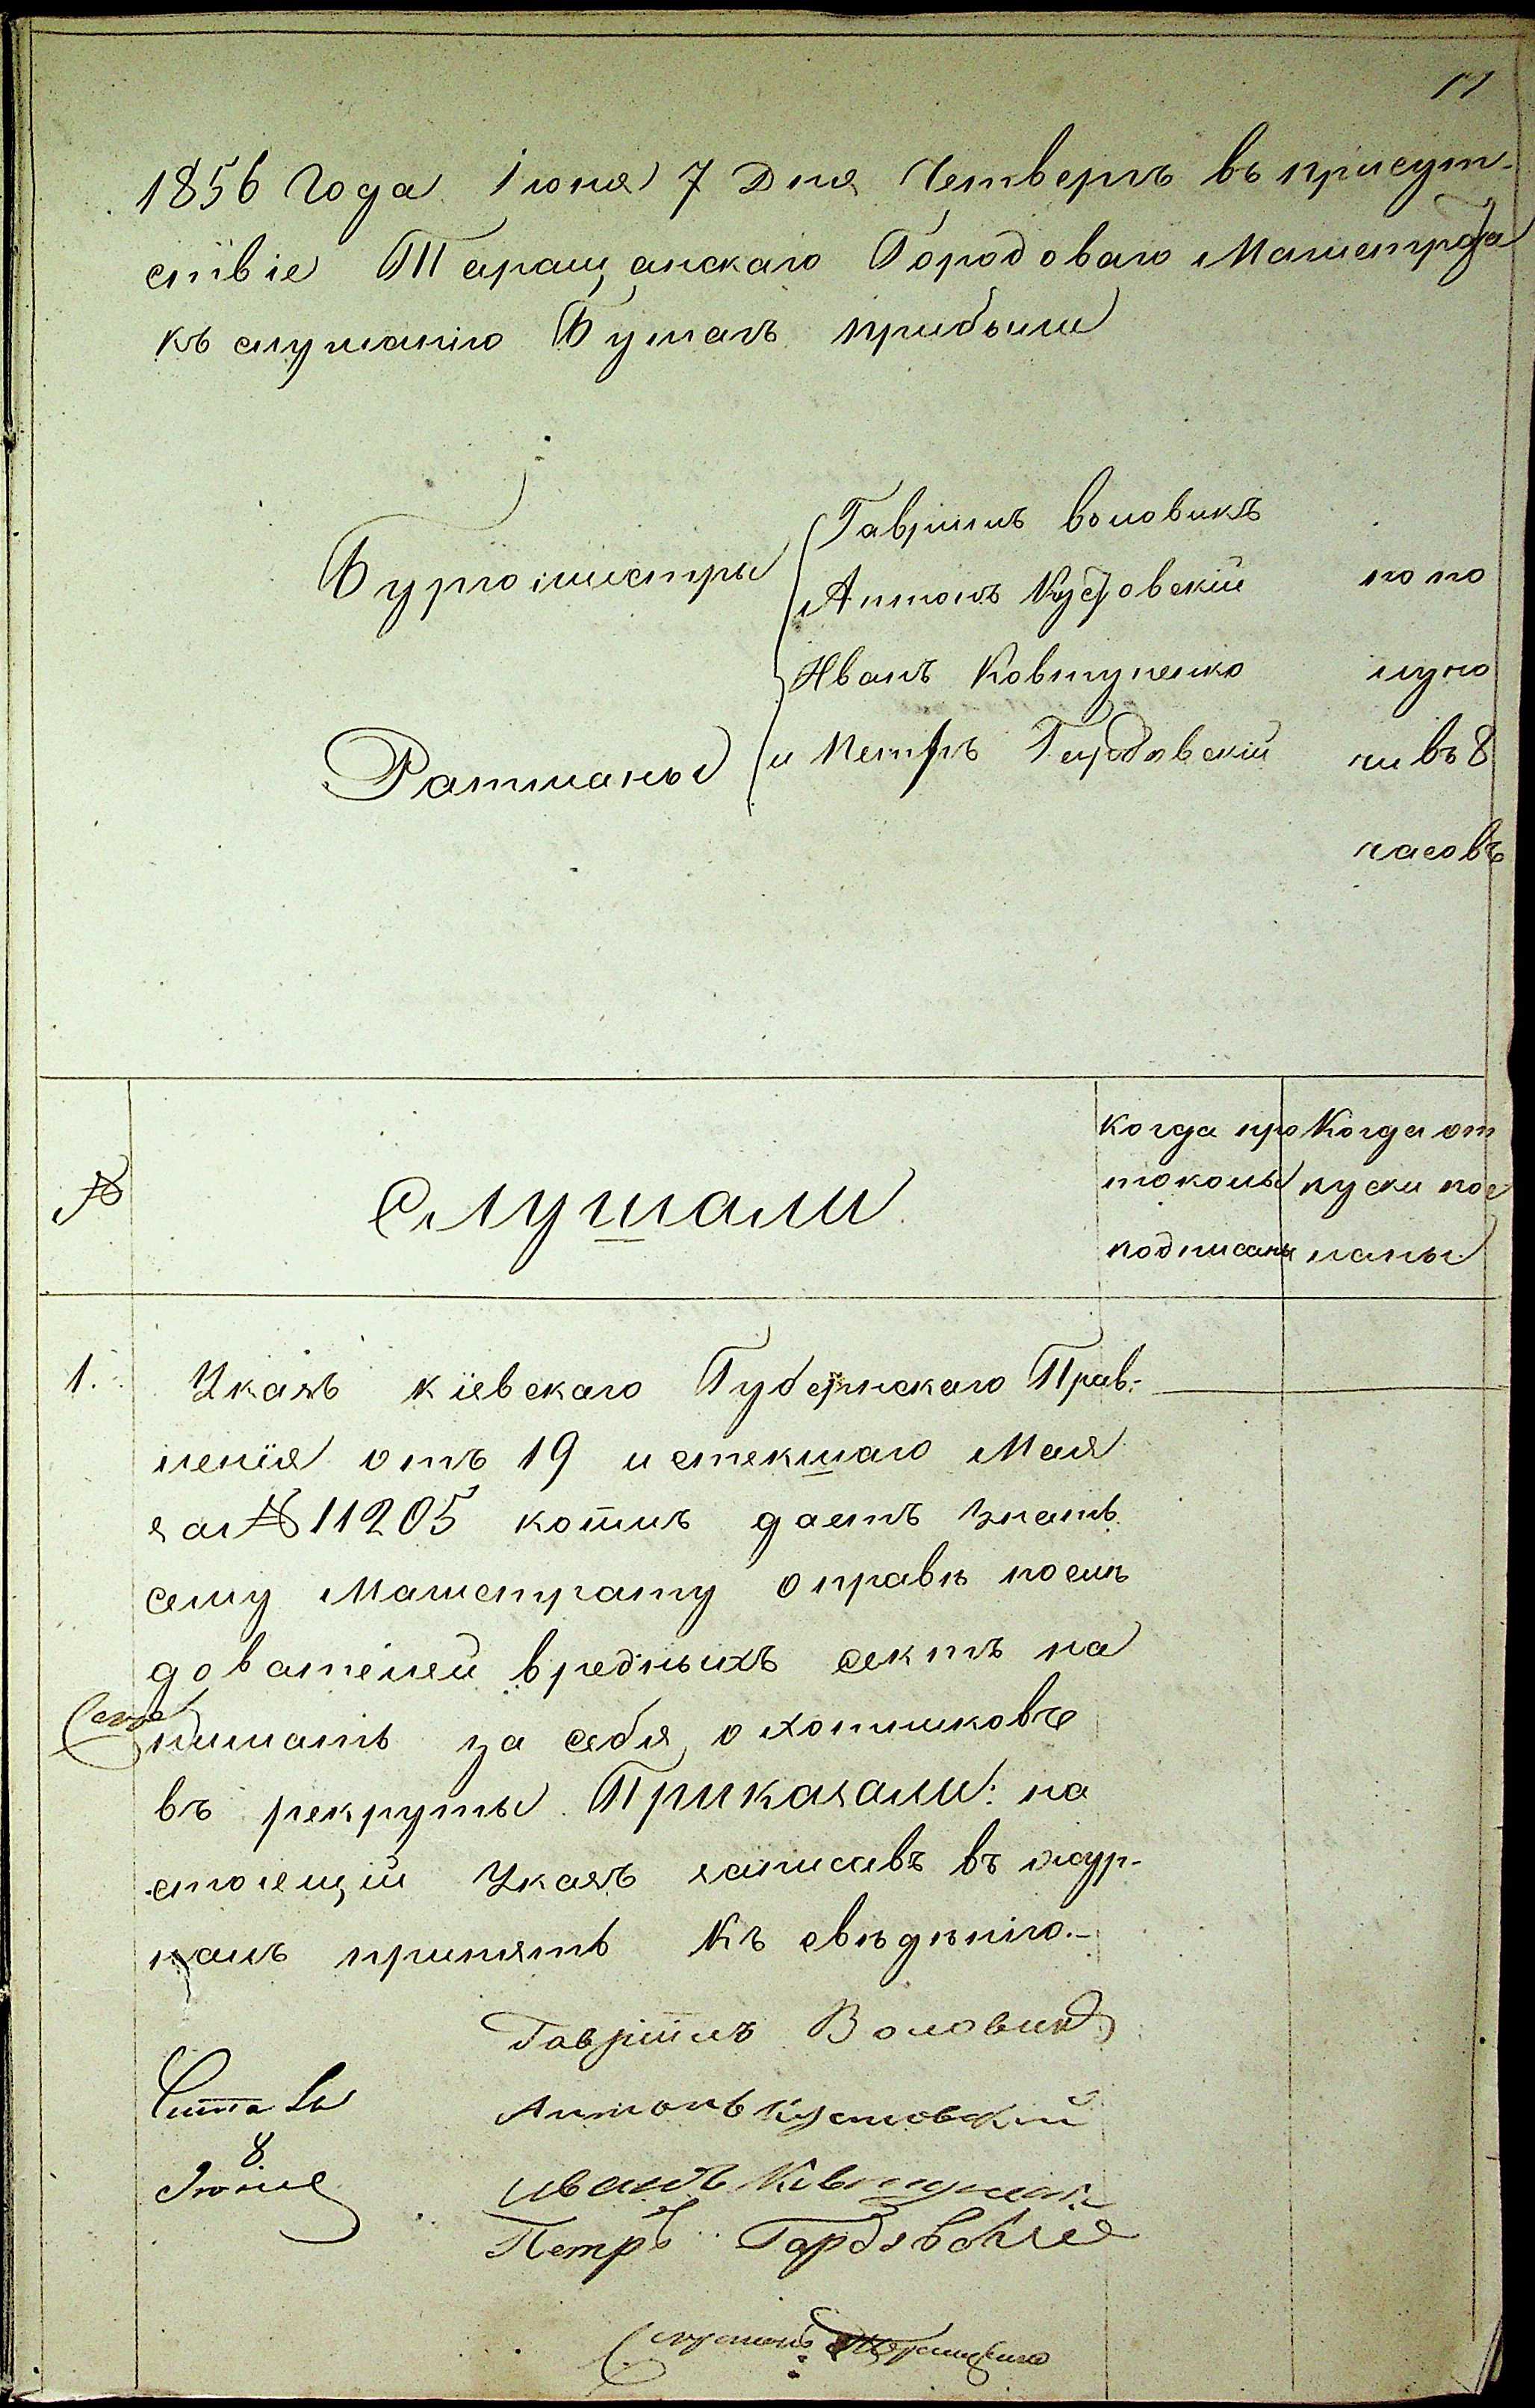 11
1856 Года Іюня 7 Дня Четвергъ въ присут-
ствіе Таращанскаго Городоваго Магистрата
къ слушанію Бумагъ прибыли
Бургомистры
Гавріилъ воловикъ
Антонъ Кустовскій
Ратманы
Иванъ Ковтуненко
и Петръ Гордовскій
по по
луно
чи въ 8
часовъ
№
Слушали
когда про
токолы
подписаны
Когда от
пуски пос
ланы
1. Указъ кіевскаго Губернскаго Прав-
ленія отъ 19 истекшаго Мая
за № 11205 коимъ даетъ знать
сему Магистрату о правѣ послѣ
дователей вредныхъ сектъ на
нимать за себя охотниковъ
въ рекруты Приказали: на
стоящій Указъ записавъ въ жур-
налъ принять къ свѣдѣнію.-
Гавріилъ Воловикъ
Антонъ Кустовскій
8
Іюня
иванъ Ковтуненко
Петръ Гордовскій